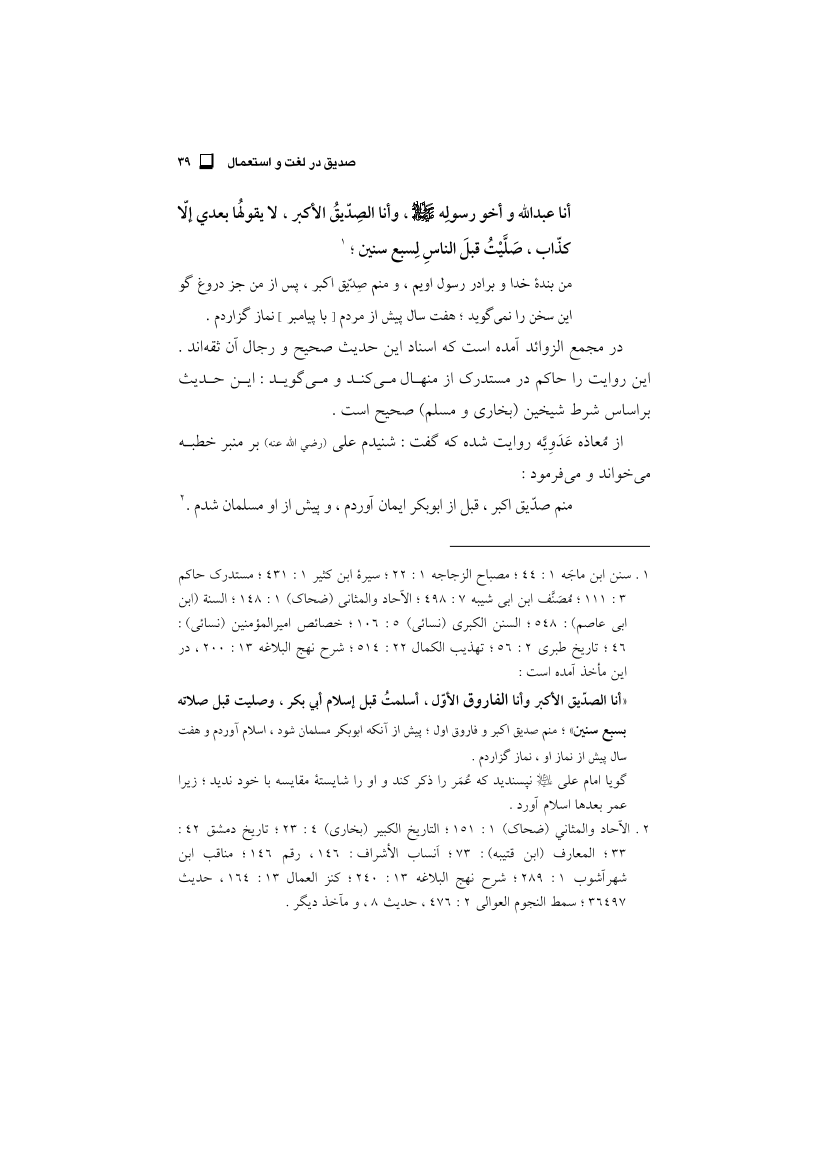 صدیق در لغت و استعمال ❏ ۳۹
أنا عبدالله و أخو رسولِه ﷺ ، وأنا الصِدّيقُ الأكبر ، لا يقولُها بعدي إلّا
كذّاب ، صَلَّيْتُ قبلَ الناسِ لِسبع سنين ؛ ۱
من بندهٔ خدا و برادر رسول اویم ، و منم صِدّیق اکبر ، پس از من جز دروغ گو
این سخن را نمی‌گوید ؛ هفت سال پیش از مردم [ با پیامبر ] نماز گزاردم .
در مجمع الزوائد آمده است که اسناد این حدیث صحیح و رجال آن ثقه‌اند .
این روایت را حاکم در مستدرک از منهال می‌کند و می‌گوید : این حدیث
براساس شرط شیخین (بخاری و مسلم) صحیح است .
از مُعاذه عَدَوِیَّه روایت شده که گفت : شنیدم علی (رضي الله عنه) بر منبر خطبه
می‌خواند و می‌فرمود :
منم صدّیق اکبر ، قبل از ابوبکر ایمان آوردم ، و پیش از او مسلمان شدم . ۲
۱ . سنن ابن ماجَه ۱ : ٤٤ ؛ مصباح الزجاجه ۱ : ۲۲ ؛ سیرهٔ ابن کثیر ۱ : ٤۳۱ ؛ مستدرک حاکم
۳ : ۱۱۱ ؛ مُصَنَّف ابن ابی شیبه ۷ : ٤۹۸ ؛ الآحاد والمثانی (ضحاک) ۱ : ۱٤۸ ؛ السنة (ابن
ابی عاصم) : ٥٤۸ ؛ السنن الکبری (نسائی) ٥ : ۱۰٦ ؛ خصائص امیرالمؤمنین (نسائی) :
٤٦ ؛ تاریخ طبری ۲ : ٥٦ ؛ تهذیب الکمال ۲۲ : ٥۱٤ ؛ شرح نهج البلاغه ۱۳ : ۲۰۰ ، در
این مأخذ آمده است :
«أنا الصدّيق الأكبر وأنا الفاروق الأوّل ، أسلمتُ قبل إسلام أبي بكر ، وصليت قبل صلاته
بسبع سنين» ؛ منم صدیق اکبر و فاروق اول ؛ پیش از آنکه ابوبکر مسلمان شود ، اسلام آوردم و هفت
سال پیش از نماز او ، نماز گزاردم .
گویا امام علی ؑ نپسندید که عُمَر را ذکر کند و او را شایستهٔ مقایسه با خود ندید ؛ زیرا
عمر بعدها اسلام آورد .
۲ . الآحاد والمثاني (ضحاک) ۱ : ۱٥۱ ؛ التاریخ الکبیر (بخاری) ٤ : ۲۳ ؛ تاریخ دمشق ٤۲ :
۳۳ ؛ المعارف (ابن قتیبه) : ۷۳ ؛ أنساب الأشراف : ۱٤٦ ، رقم ۱٤٦ ؛ مناقب ابن
شهرآشوب ۱ : ۲۸۹ ؛ شرح نهج البلاغه ۱۳ : ۲٤۰ ؛ کنز العمال ۱۳ : ۱٦٤ ، حدیث
۳٦٤۹۷ ؛ سمط النجوم العوالی ۲ : ٤۷٦ ، حدیث ۸ ، و مآخذ دیگر .